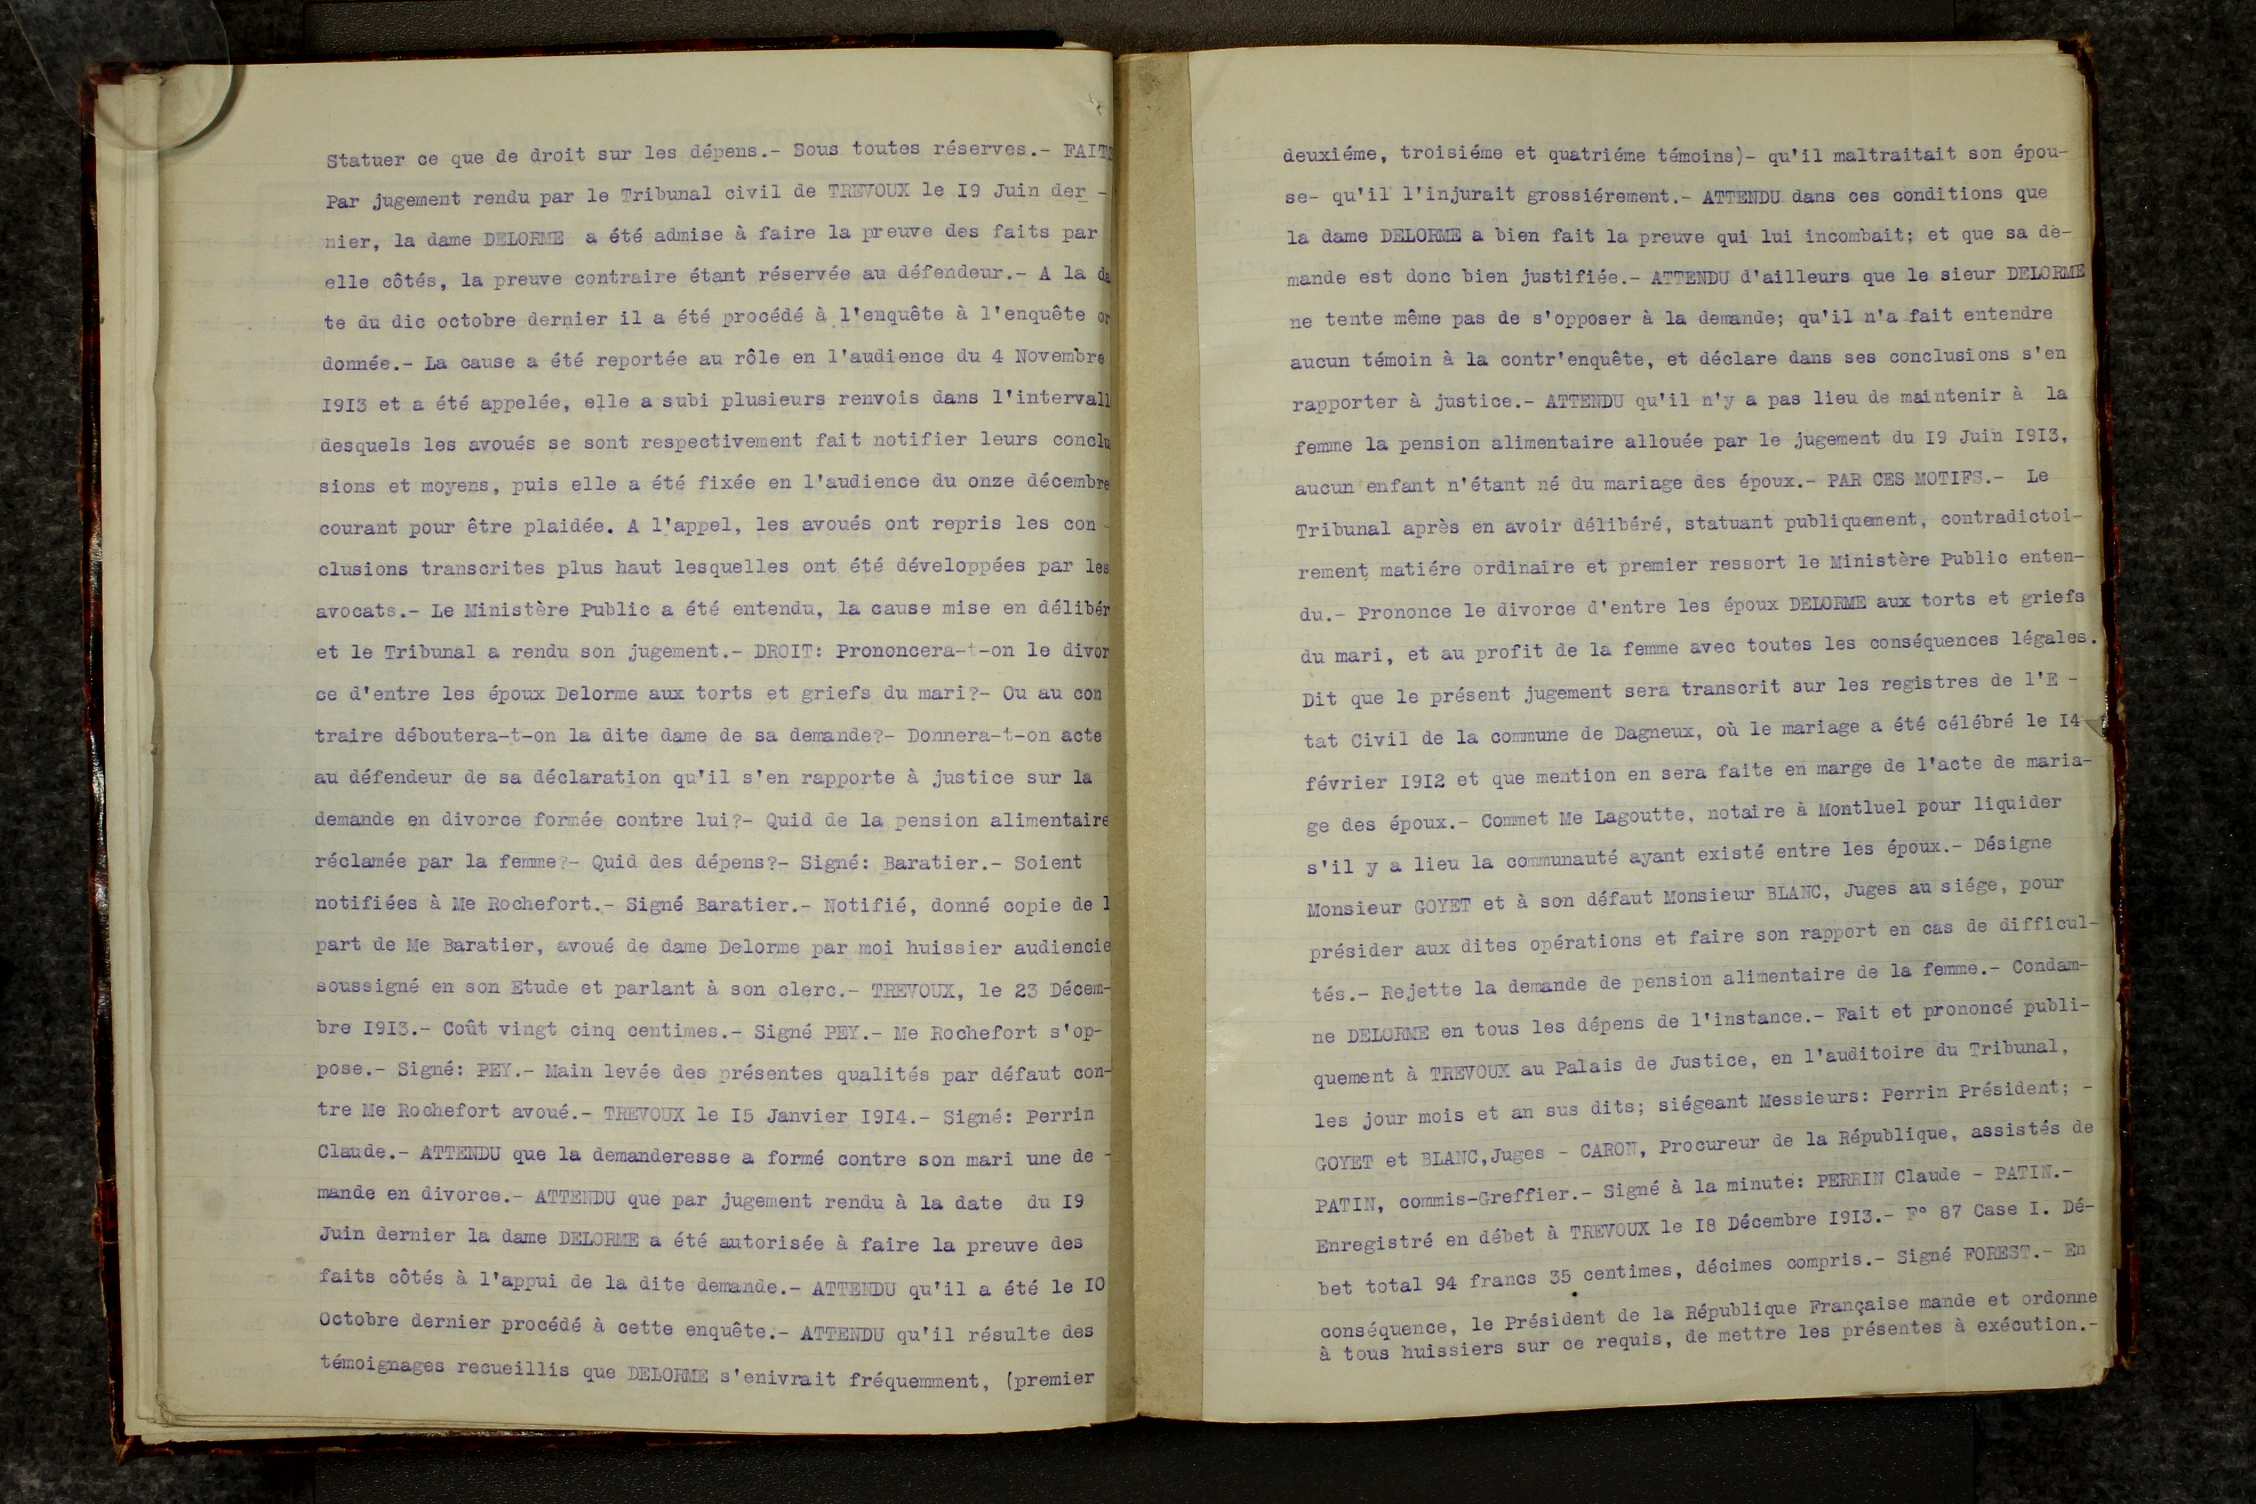 Statuer ce que de droit sur les dépens.- Sous toutes réserves.- FAITS
Par jugement rendu par le Tribunal civil de TREVOUX le I9 Juin der -
nier, la dame DELORME a été admise à faire la preuve des faits par
elle côtés, la preuve contraire étant réservée au défendeur.- A la da
te du dic octobre dernier il a été procédé à l'enquête à l'enquête or
donnée.- La cause a été reportée au rôle en l'audience du 4 Novembre
I9I3 et a été appelée, elle a subi plusieurs renvois dans l'intervall
desquels les avoués se sont respectivement fait notifier leurs conclu
sions et moyens, puis elle a été fixée en l'audience du onze décembre
courant pour être plaidée. A l'appel, les avoués ont repris les con -
clusions transcrites plus haut lesquelles ont été développées par les
avocats.- Le Ministère Public a été entendu, la cause mise en délibér
et le Tribunal a rendu son jugement.- DROIT: Prononcera-t-on le divor
ce d'entre les époux Delorme aux torts et griefs du mari?- Ou au con
traire déboutera-t-on la dite dame de sa demande?- Donnera-t-on acte
au défendeur de sa déclaration qu'il s'en rapporte à justice sur la
demande en divorce formée contre lui?- Quid de la pension alimentaire
réclamée par la femme?- Quid des dépens?- Signé: Baratier.- Soient
notifiées à Me Rochefort.- Signé Baratier.- Notifié, donné copie de l
part de Me Baratier, avoué de dame Delorme par moi huissier audiencie
soussigné en son Etude et parlant à son clerc.- TREVOUX, le 23 Décem-
bre I9I3.- Coût vingt cinq centimes.- Signé PEY.- Me Rochefort s'op-
pose.- Signé: PEY.- Main levée des présentes qualités par défaut con-
tre Me Rochefort avoué.- TREVOUX le I5 Janvier I9I4.- Signé: Perrin
Claude.- ATTENDU que la demanderesse a formé contre son mari une de -
mande en divorce.- ATTENDU que par jugement rendu à la date du I9
Juin dernier la dame DELORME a été autorisée à faire la preuve des
faits côtés à l'appui de la dite demande.- ATTENDU qu'il a été le IO
Octobre dernier procédé à cette enquête.- ATTENDU qu'il résulte des
témoignages recueillis que DELORME s'enivrait fréquemment, (premier
deuxiéme, troisiéme et quatriéme témoins)- qu'il maltraitait son épou-
se- qu'il l'injurait grossiérement.- ATTENDU dans ces conditions que
la dame DELORME a bien fait la preuve qui lui incombait; et que sa de-
mande est donc bien justifiée.- ATTENDU d'ailleurs que le sieur DELORME
ne tente même pas de s'opposer à la demande; qu'il n'a fait entendre
aucun témoin à la contr'enquête, et déclare dans ses conclusions s'en
rapporter à justice.- ATTENDU qu'il n'y a pas lieu de maintenir à la
femme la pension alimentaire allouée par le jugement du I9 Juin I9I3,
aucun enfant n'étant né du mariage des époux.- PAR CES MOTIFS.- Le
Tribunal après en avoir délibéré, statuant publiquement, contradictoi-
rement matiére ordinaire et premier ressort le Ministère Public enten-
du.- Prononce le divorce d'entre les époux DELORME aux torts et griefs
du mari, et au profit de la femme avec toutes les conséquences légales.
Dit que le présent jugement sera transcrit sur les registres de l'E -
tat Civil de la commune de Dagneux, où le mariage a été célébré le I4
février I9I2 et que mention en sera faite en marge de l'acte de maria-
ge des époux.- Commet Me Lagoutte, notaire à Montluel pour liquider
s'il y a lieu la communauté ayant existé entre les époux.- Désigne
Monsieur GOYET et à son défaut Monsieur BLANC, Juges au siége, pour
présider aux dites opérations et faire son rapport en cas de difficul-
tés.- Rejette la demande de pension alimentaire de la femme.- Condam-
ne DELORME en tous les dépens de l'instance.- Fait et prononcé publi-
quement à TREVOUX au Palais de Justice, en l'auditoire du Tribunal,
les jour mois et an sus dits; siégeant Messieurs: Perrin Président; -
GOYET et BLANC,Juges - CARON, Procureur de la République, assistés de
PATIN, commis-Greffier.- Signé à la minute: PERRIN Claude - PATIN.-
Enregistré en débet à TREVOUX le I8 Décembre I9I3.- F° 87 Case I. Dé-
bet total 94 francs 35 centimes, décimes compris.- Signé FOREST.- En
conséquence, le Président de la République Française mande et ordonne
à tous huissiers sur ce requis, de mettre les présentes à exécution.-